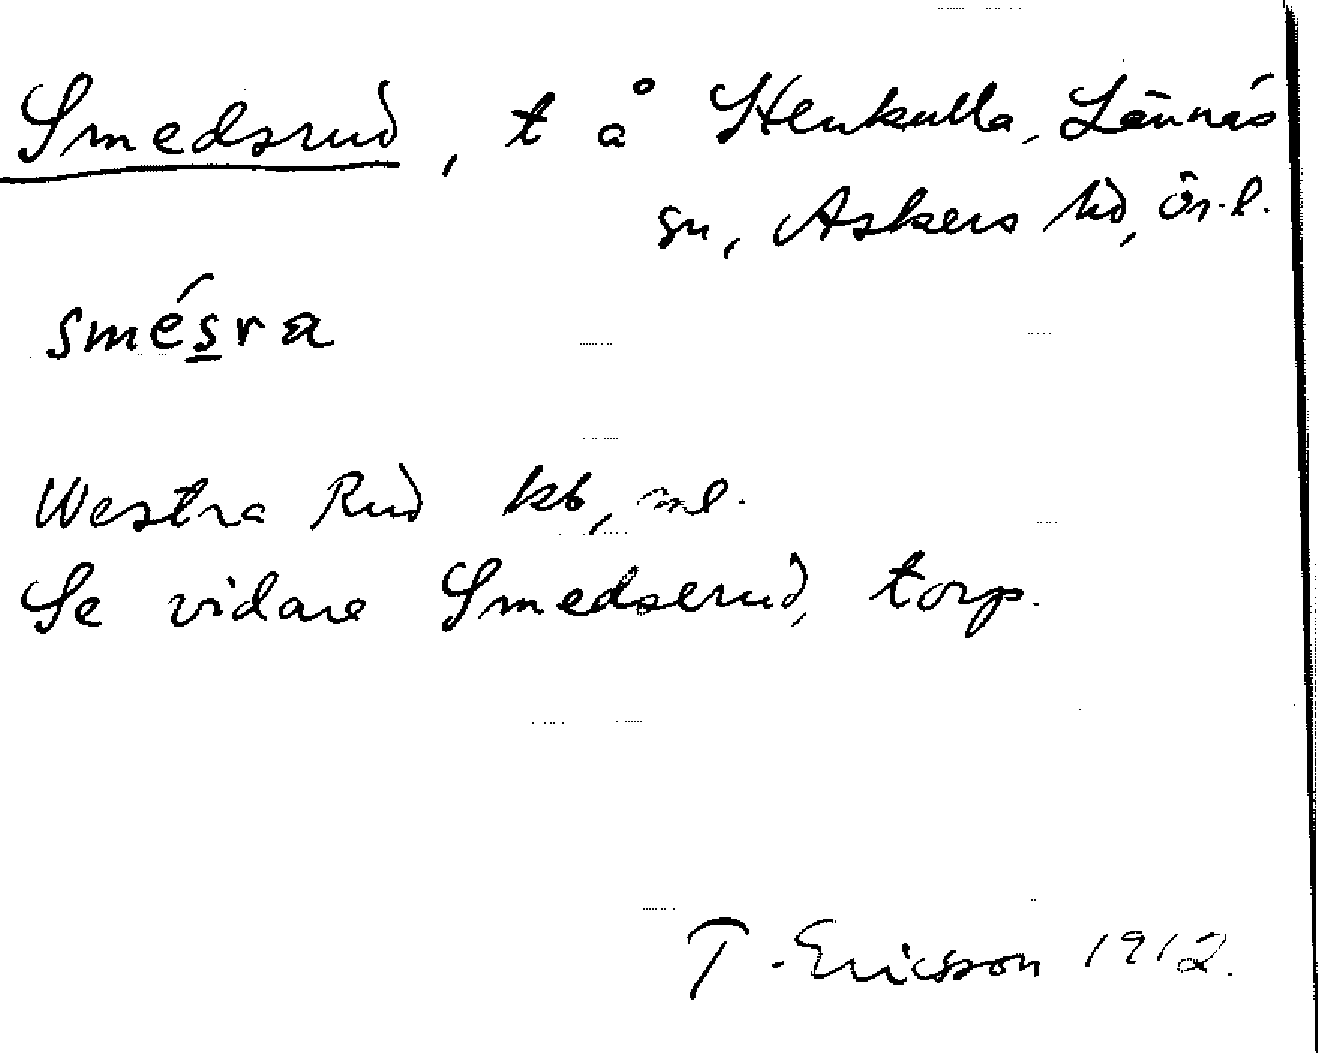 Smedsrud, t å Stenkulla, Lännäs
sn, Askers hd, Ör. l.
smésra
Westra Rud kb, ml.
Se vidare Smedserud, torp.
T. Ericsson 1912.